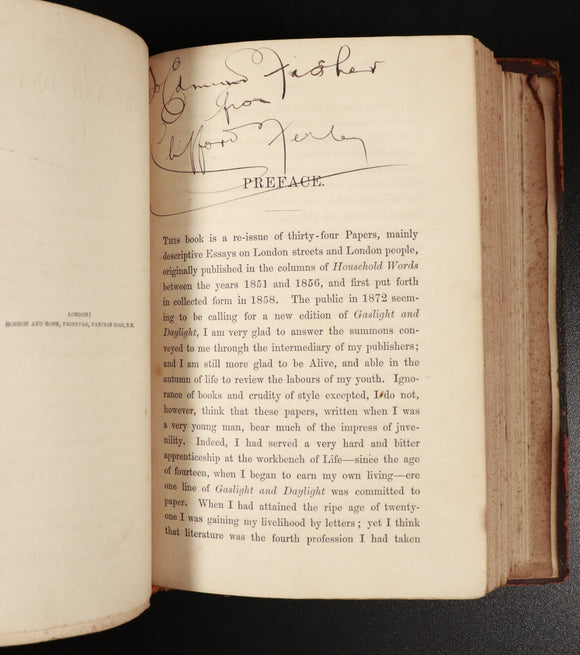 LONDON:
ROBSON AND SONS, PRINTERS, PANCRAS ROAD, N.W.
Edmund Fisher
from
Clifford
PREFACE.
THIS book is a re-issue of thirty-four Papers, mainly
descriptive Essays on London streets and London people,
originally published in the columns of Household Words
between the years 1851 and 1856, and first put forth
in collected form in 1858. The public in 1872 seem-
ing to be calling for a new edition of Gaslight and
Daylight, I am very glad to answer the summons con-
veyed to me through the intermediary of my publishers;
and I am still more glad to be Alive, and able in the
autumn of life to review the labours of my youth. Igno-
rance of books and crudity of style excepted, I do not,
however, think that these papers, written when I was
a very young man, bear much of the impress of juve-
nility. Indeed, I had served a very hard and bitter
apprenticeship at the workbench of Life—since the age
of fourteen, when I began to earn my own living—ere
one line of Gaslight and Daylight was committed to
paper. When I had attained the ripe age of twenty-
one I was gaining my livelihood by letters; yet I think
that literature was the fourth profession I had taken